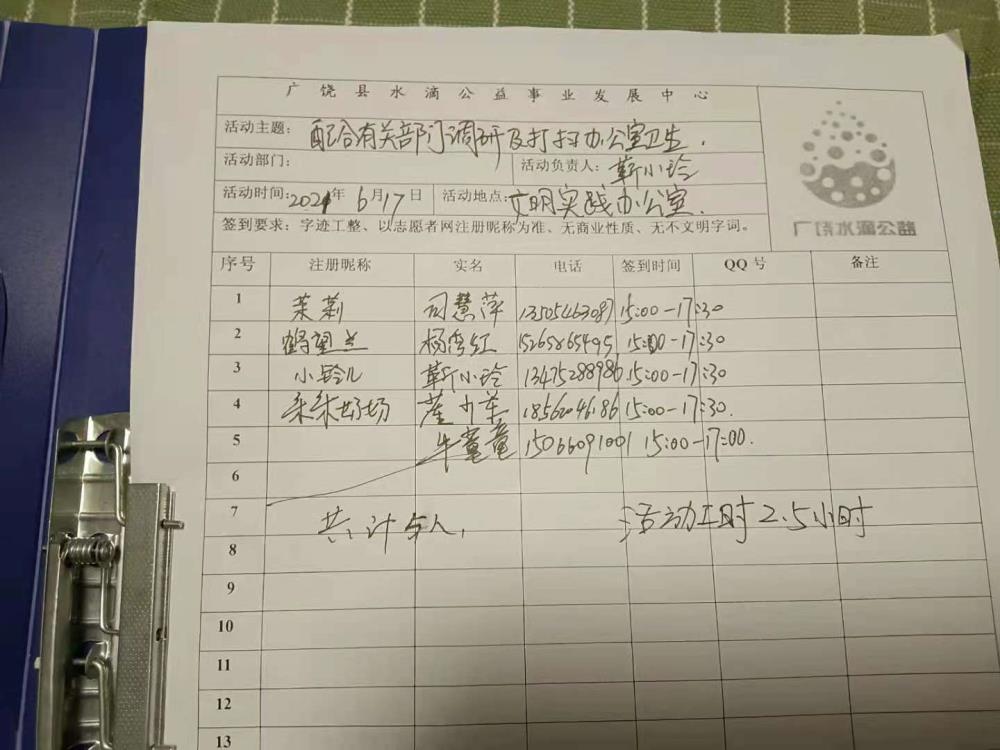 广饶县水滴公益事业发展中心
活动主题：配合有关部门调研及打扫办公室卫生.
活动部门： 活动负责人：靳小玲
活动时间：2021年 6月17日 活动地点：文明实践办公室.
签到要求：字迹工整、以志愿者网注册昵称为准、无商业性质、无不文明字词。
广饶水滴公益
序号 注册昵称 实名 电话 签到时间 QQ号 备注
1 茉莉 司慧萍 13505463087 15:00-17:30
2 鹤望兰 杨秀红 15265865495 15:00-17:30
3 小铃儿 靳小玲 13475288986 15:00-17:30
4 朵朵奶奶 18562046186 15:00-17:30.
5 牛童童 15066091001 15:00-17:00.
6
7 共计5人, 活动工时2.5小时
8
9
10
11
12
13